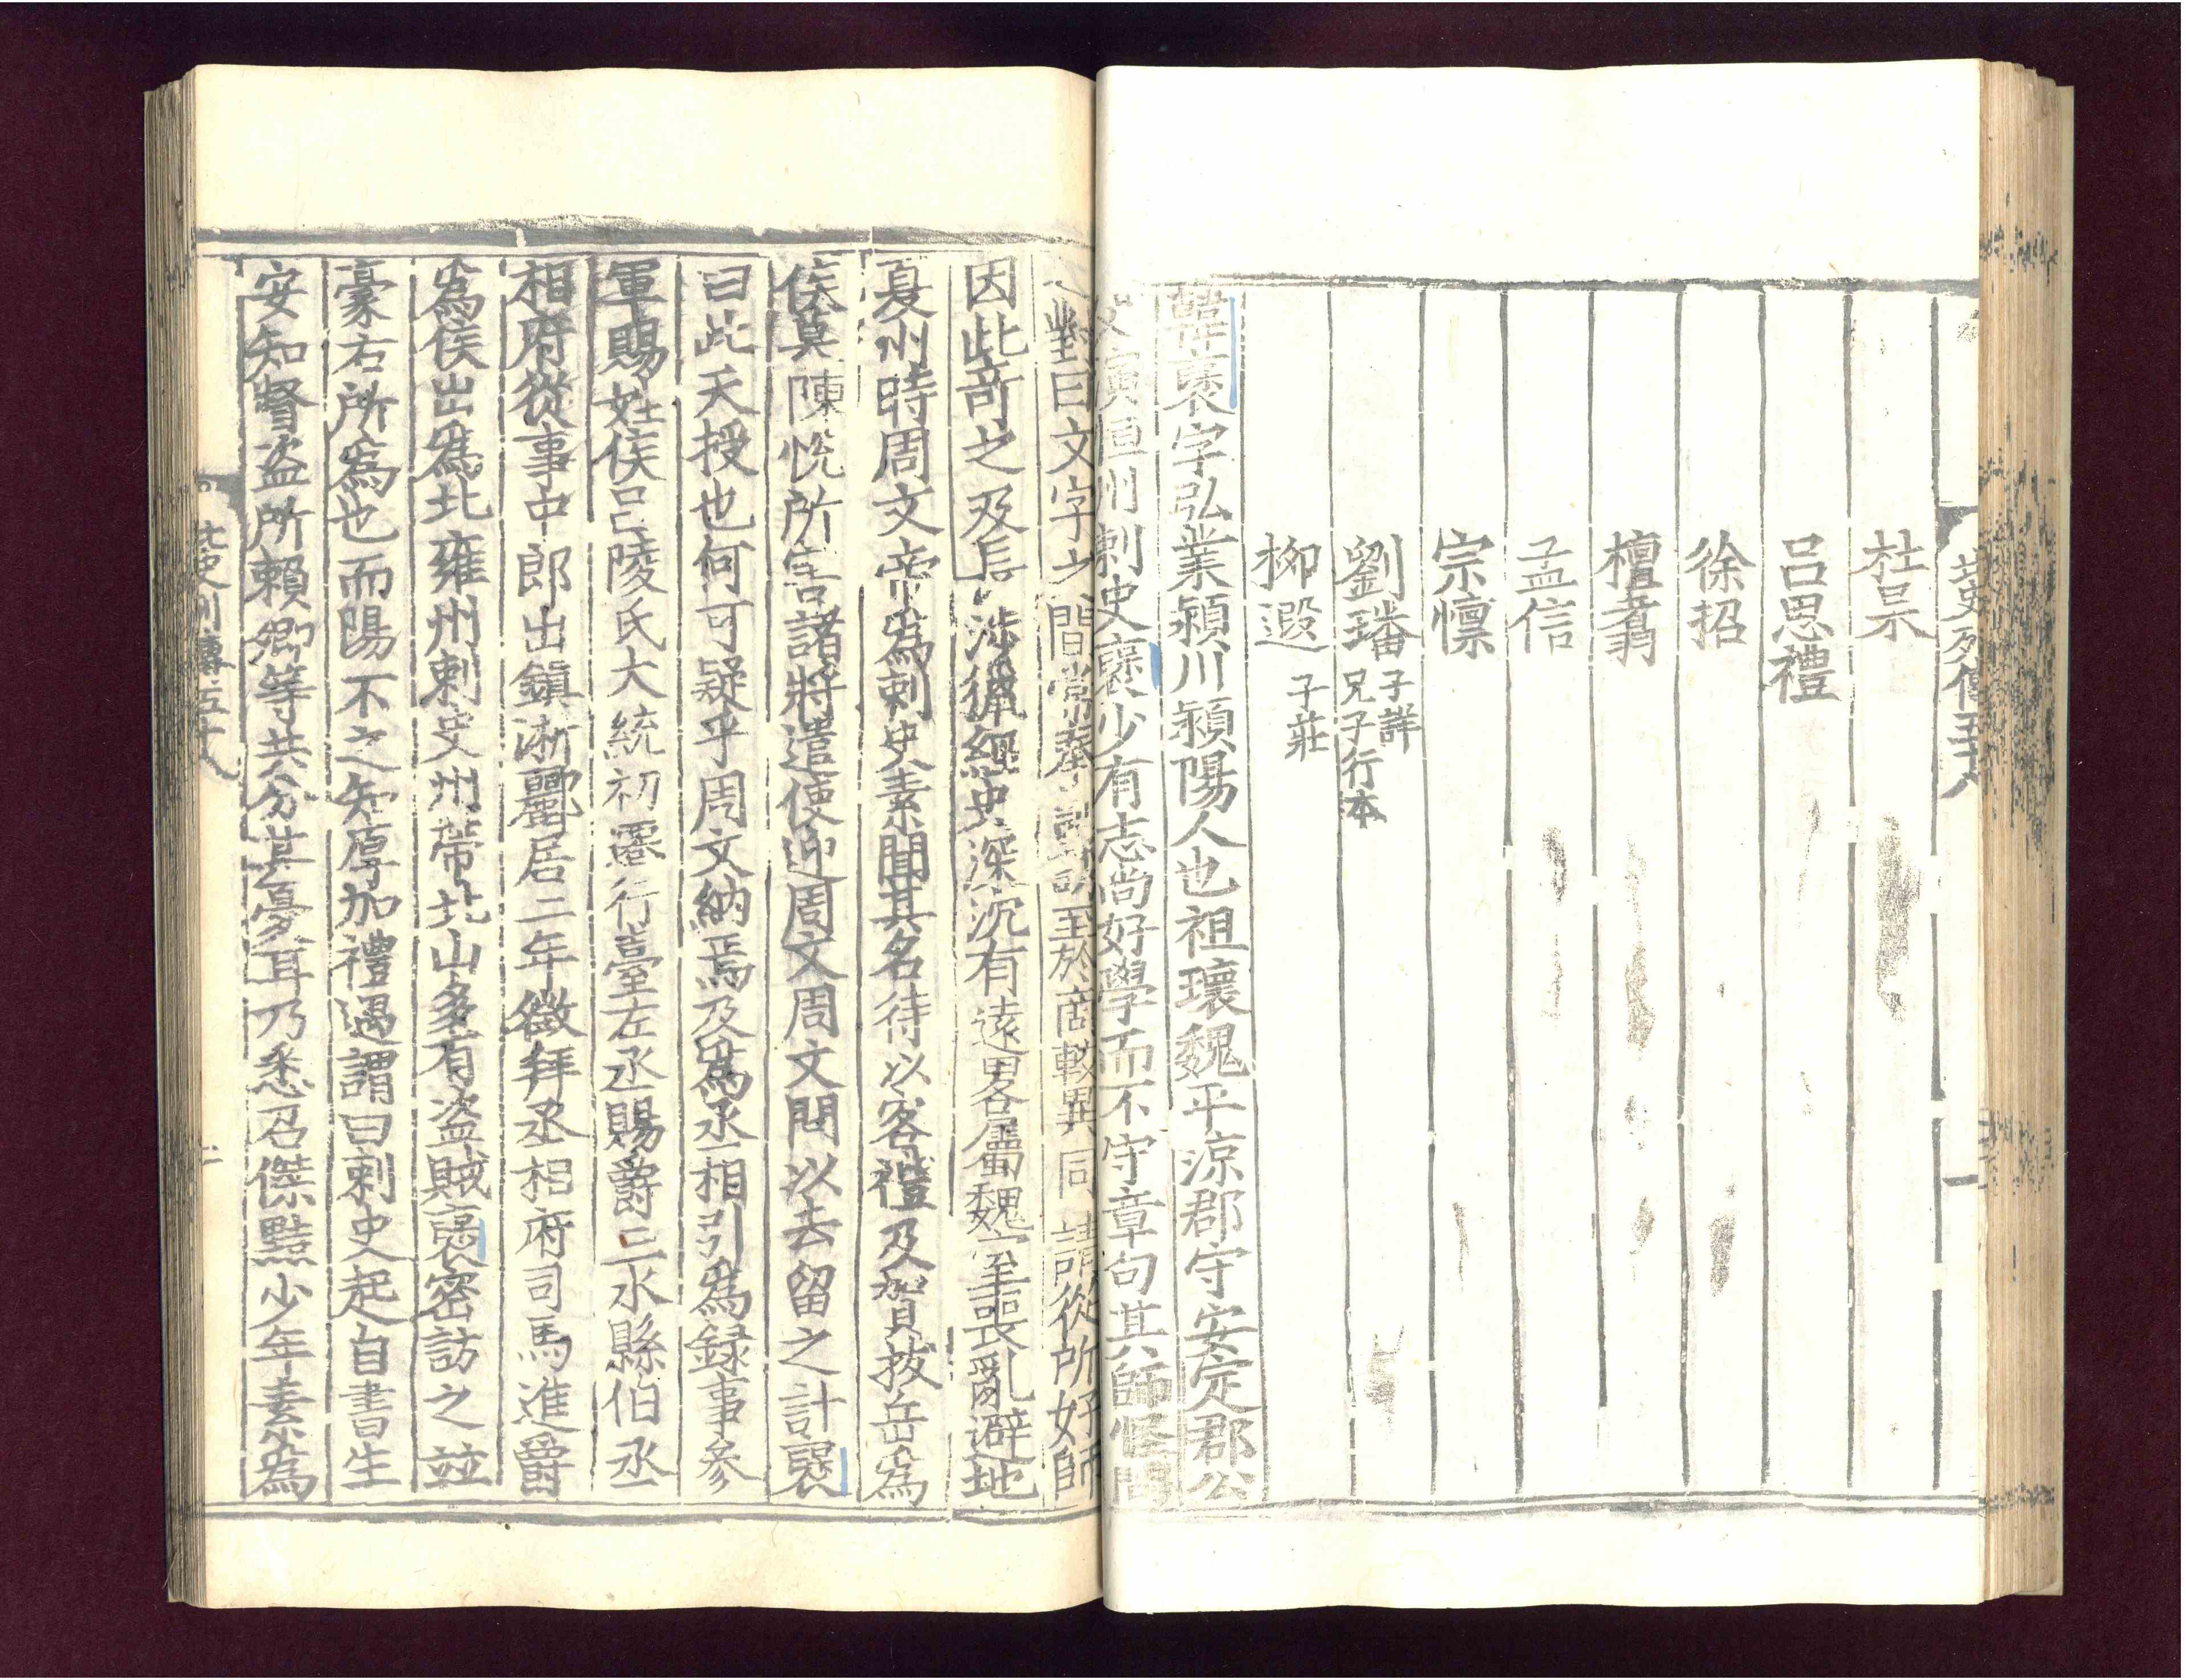 北史列傳五十八
一
杜杲
呂思禮
徐招
檀翥
孟信
宗懍
劉璠 子詳 兄子行本
柳遐 子莊
韓襃字弘業潁川潁陽人也祖瓌魏平涼郡守安定郡公
父演恒州刺史襃少有志尚好學而不守章句其師怪問
之對曰文字之間常奉訓誘至於商較異同請從所好師
因此竒之及長涉獵經史深沉有遠畧屬魏室喪亂避地
夏州時周文帝爲刺史素聞其名待以客禮及賀拔岳爲
侯莫陳恱所害諸將遣使迎周文周文問以去留之計襃
曰此天授也何可疑乎周文納焉及爲丞相引爲録事參
軍賜姓侯呂陵氏大統初遷行臺左丞賜爵三水縣伯丞
相府從事中郎出鎮淅酈居二年徵拜丞相府司馬進爵
爲侯出爲北雍州刺史州帶北山多有盗賊襃密訪之並
豪右所爲也而陽不之知厚加禮遇謂曰刺史起自書生
安知督盗所賴卿等共分其憂耳乃悉召傑黠少年素爲
北史列傳五十八